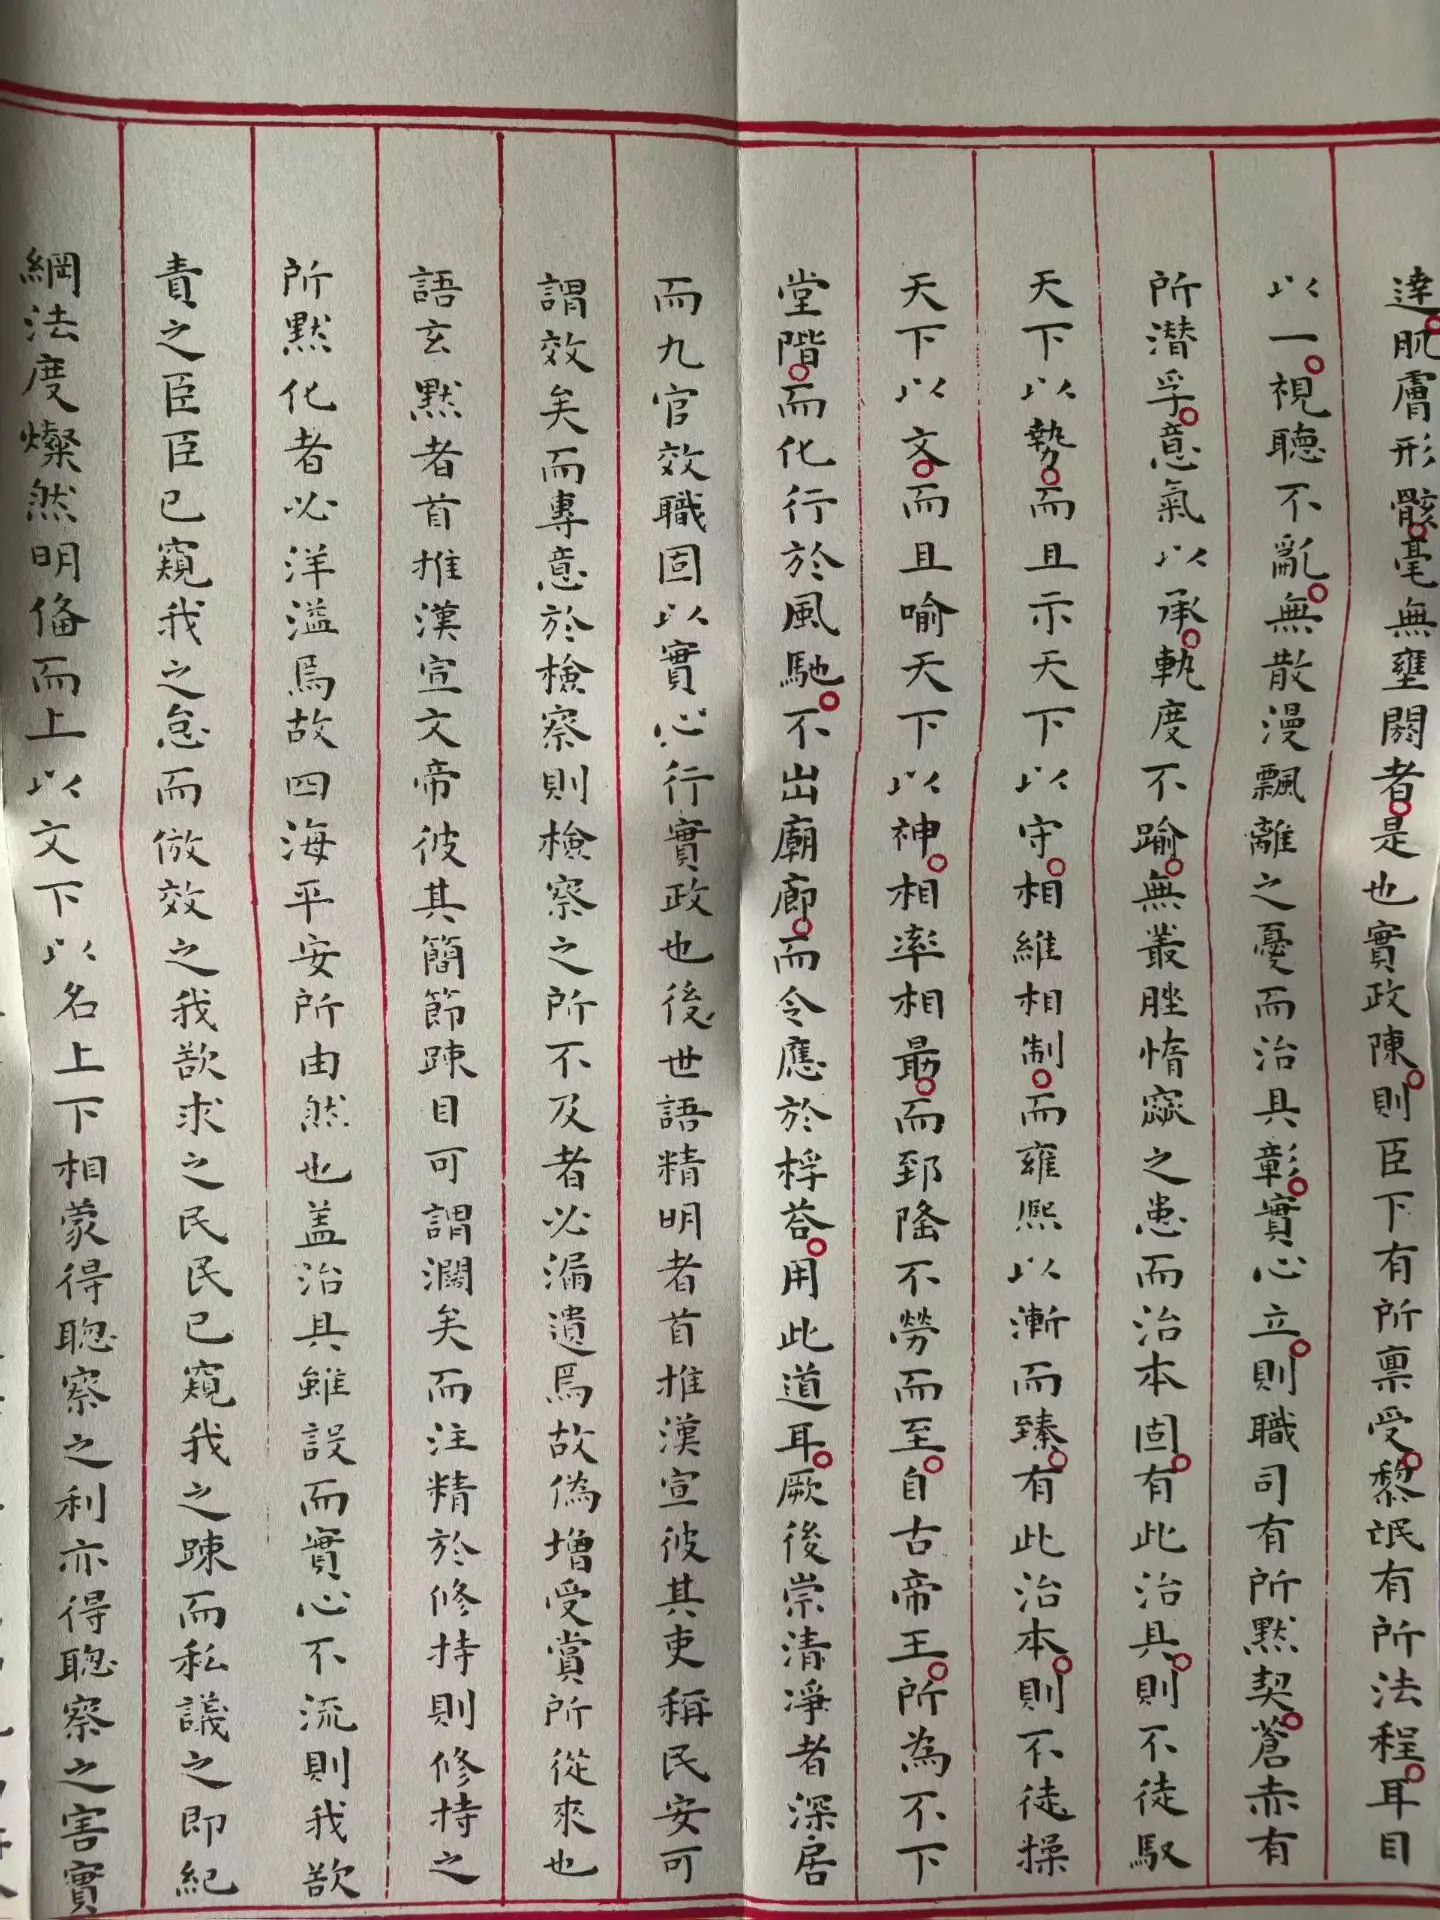 達肌膚形骸毫無壅閼者是也實政陳則臣下有所禀受黎氓有所法程耳目
以一視聽不亂無散漫飄離之憂而治具彰實心立則職司有所默契蒼赤有
所潜孚意氣以承軌度不踰無叢脞惰窳之患而治本固有此治具則不徒馭
天下以勢而且示天下以守相維相制而雍熙以漸而臻有此治本則不徒操
天下以文而且喻天下以神相率相最而郅隆不勞而至自古帝王所為不下
堂階而化行於風馳不出廟廊而令應於桴荅用此道耳厥後崇清凈者深居
而九官效職固以實心行實政也後世語精明者首推漢宣彼其吏稱民安可
謂效矣而專意於檢察則檢察之所不及者必漏遺焉故偽增受賞所從來也
語玄默者首推漢宣文帝彼其簡節踈目可謂濶矣而注精於修持則修持之
所默化者必洋溢焉故四海平安所由然也盖治具雖設而實心不流則我欲
責之臣臣已窺我之怠而倣效之我欲求之民民已窺我之踈而私議之即紀
綱法度燦然明俻而上以文下以名上下相蒙得聦察之利亦得聦察之害實